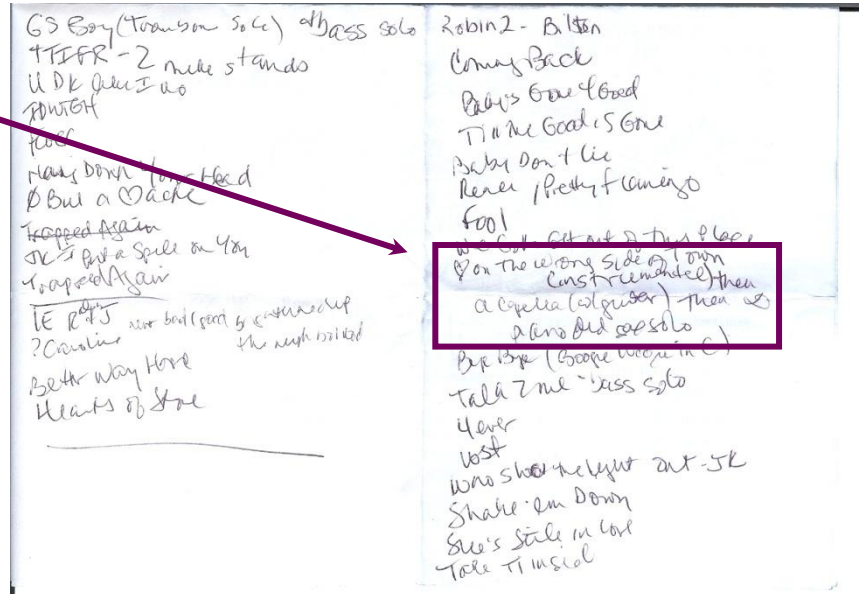 GS Boy (Trombone Solo) & bass solo
TTIFR - 2 mike stands
U DK
Hang Down Your Head
Ø But a ♡ache
Trapped Again
JK I Put a Spell on You
Trapped Again
IE R & J
? Caroline
the neighborhood
Better Way Home
Hearts of Stone
Robin 2 - Bilston
Coming Back
Baby's Gone 4 Good
Til the Good is Gone
Baby Don't Lie
Renee / Pretty Flamingo
Fool
We Gotta Get out of This Place
♡ on The Wrong Side of Town
(instrumental) then
a capella (w/guitar) then
Bye Bye (Boogie Woogie in C)
Talk 2 me - bass solo
4ever
Lost
Who Shot the Light Out - JK
Shake 'em Down
She's Still in Love
Take It Inside